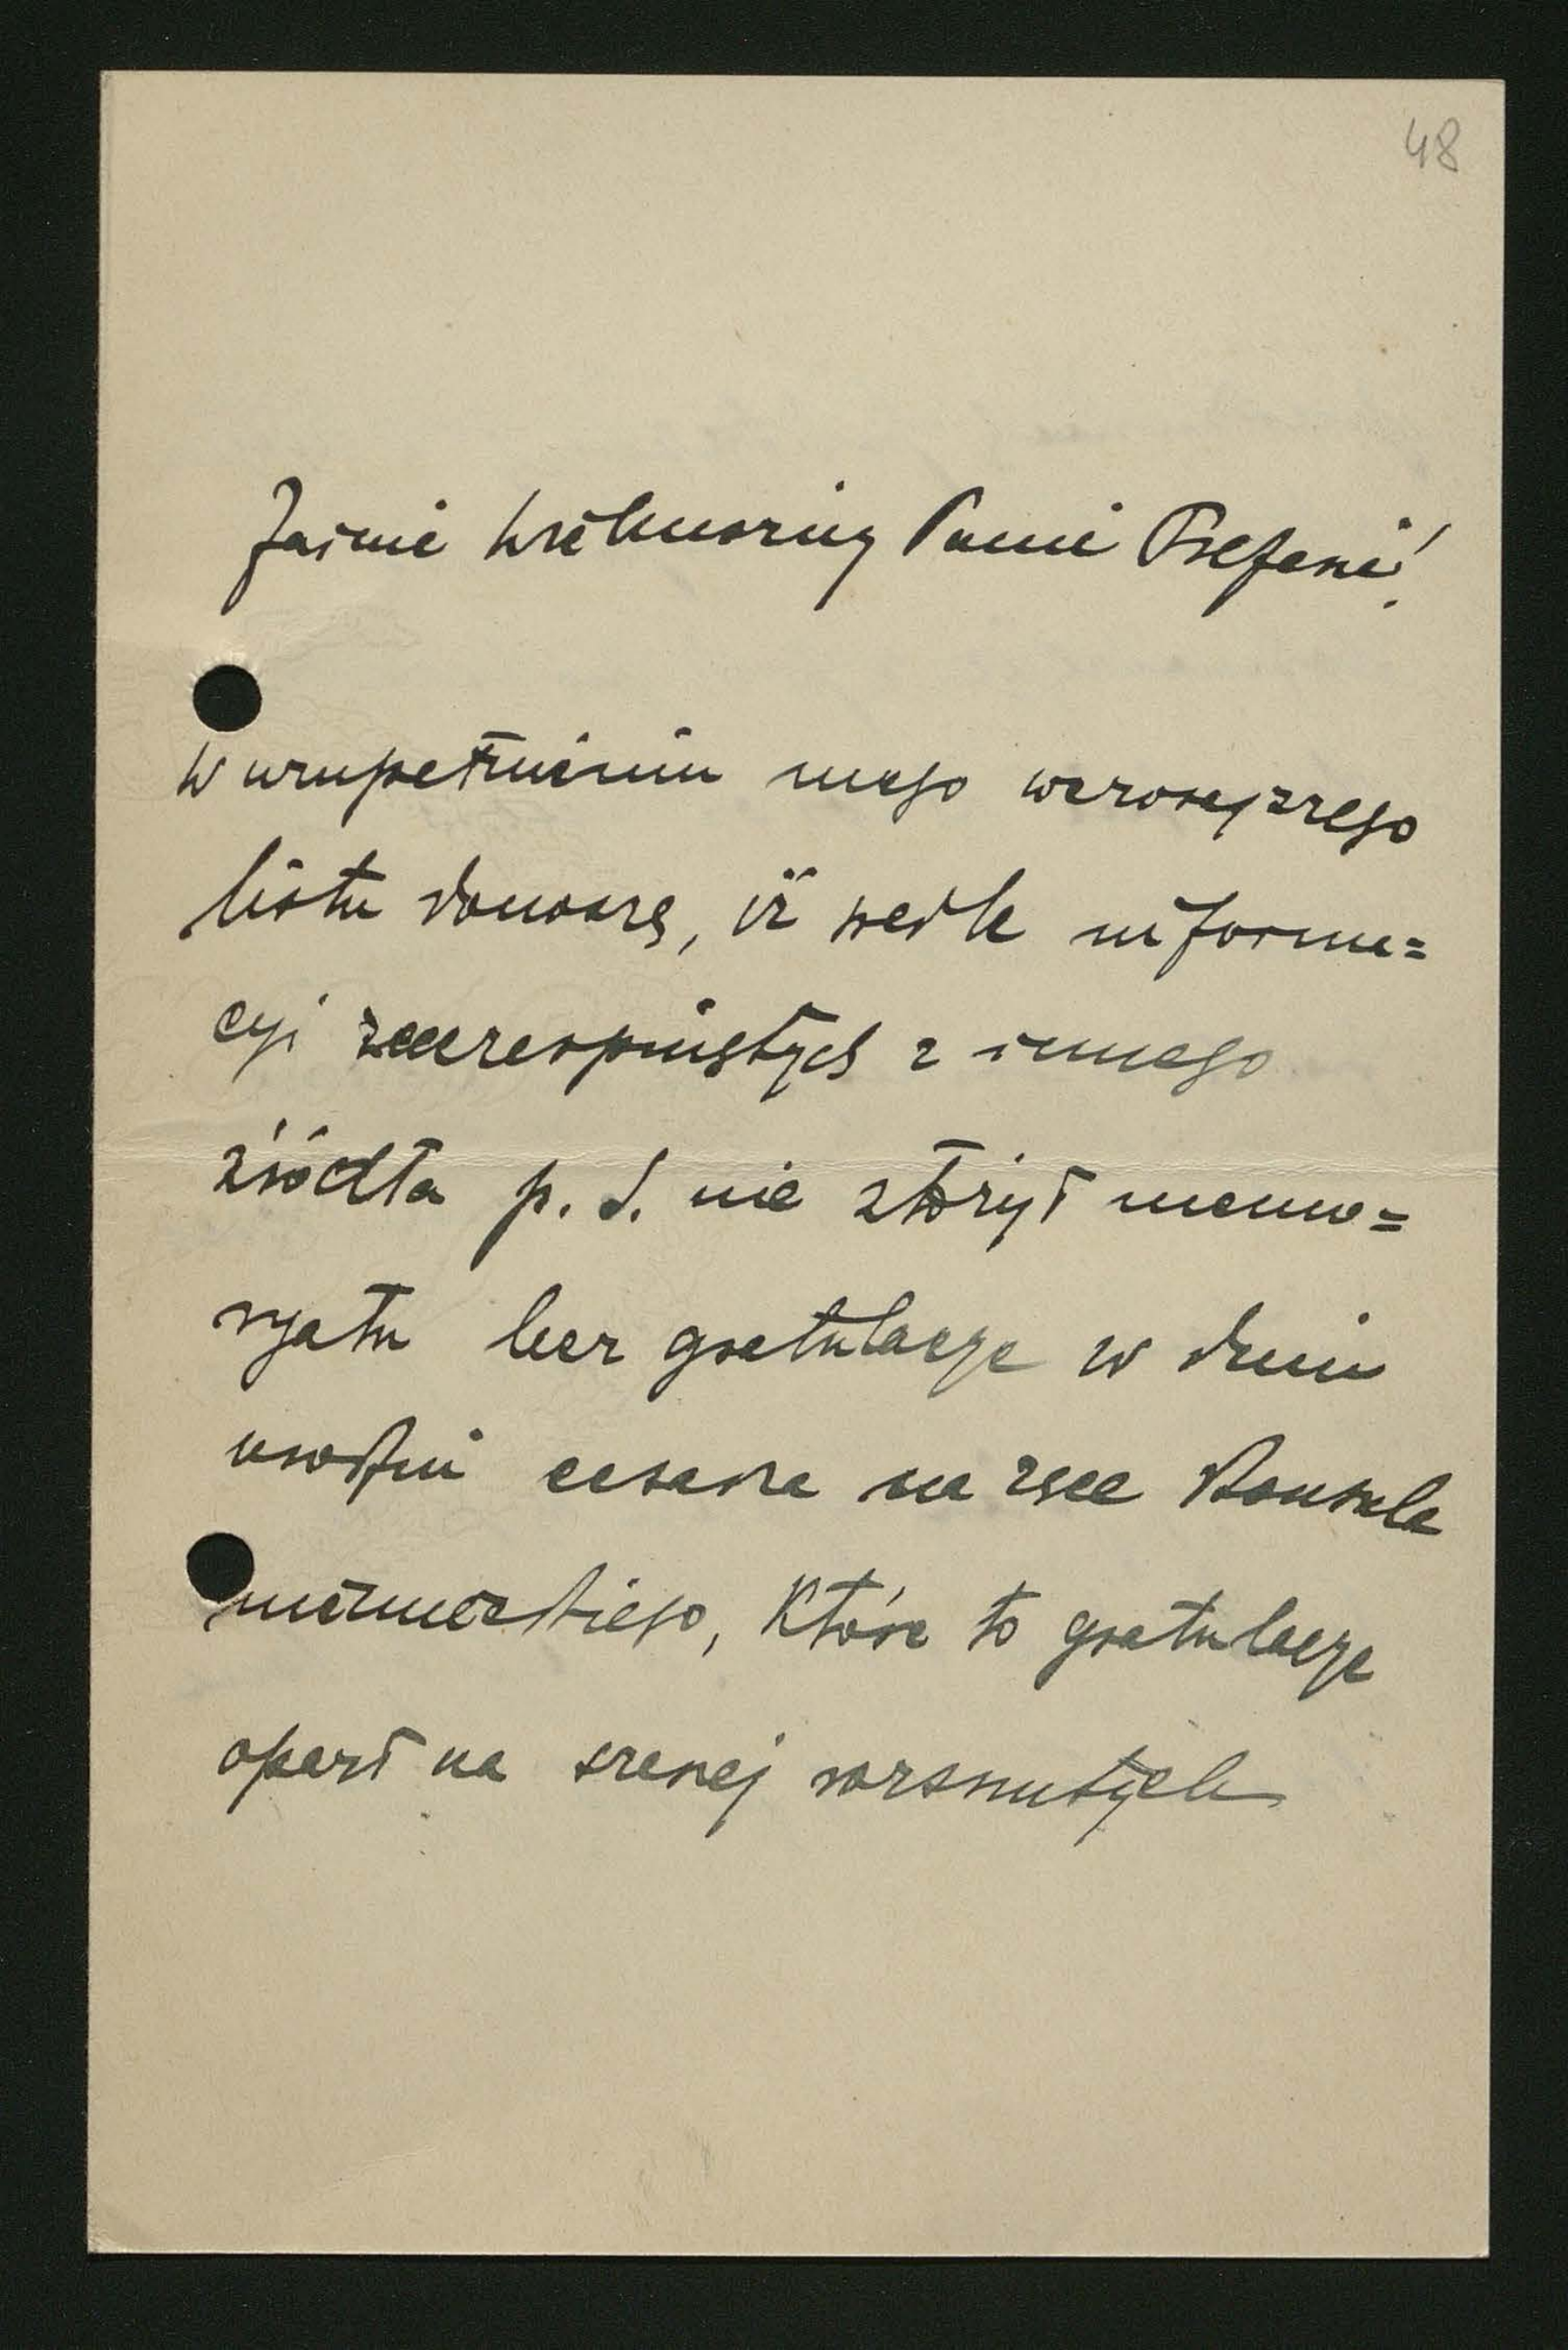 48
Jaśnie Wielmożny Panie Prezesie!
W uzupełnieniu mego wczorajszego
listu donoszę, iż wedle informa=
cyi zaczerpniętych z innego
źródła p. S. nie złożył memo=
ryału lecz gratulacye w dniu
urodzin cesarza na ręce Konsula
niemieckiego, które to gratulacye
oparł na szerzej rozsnutych